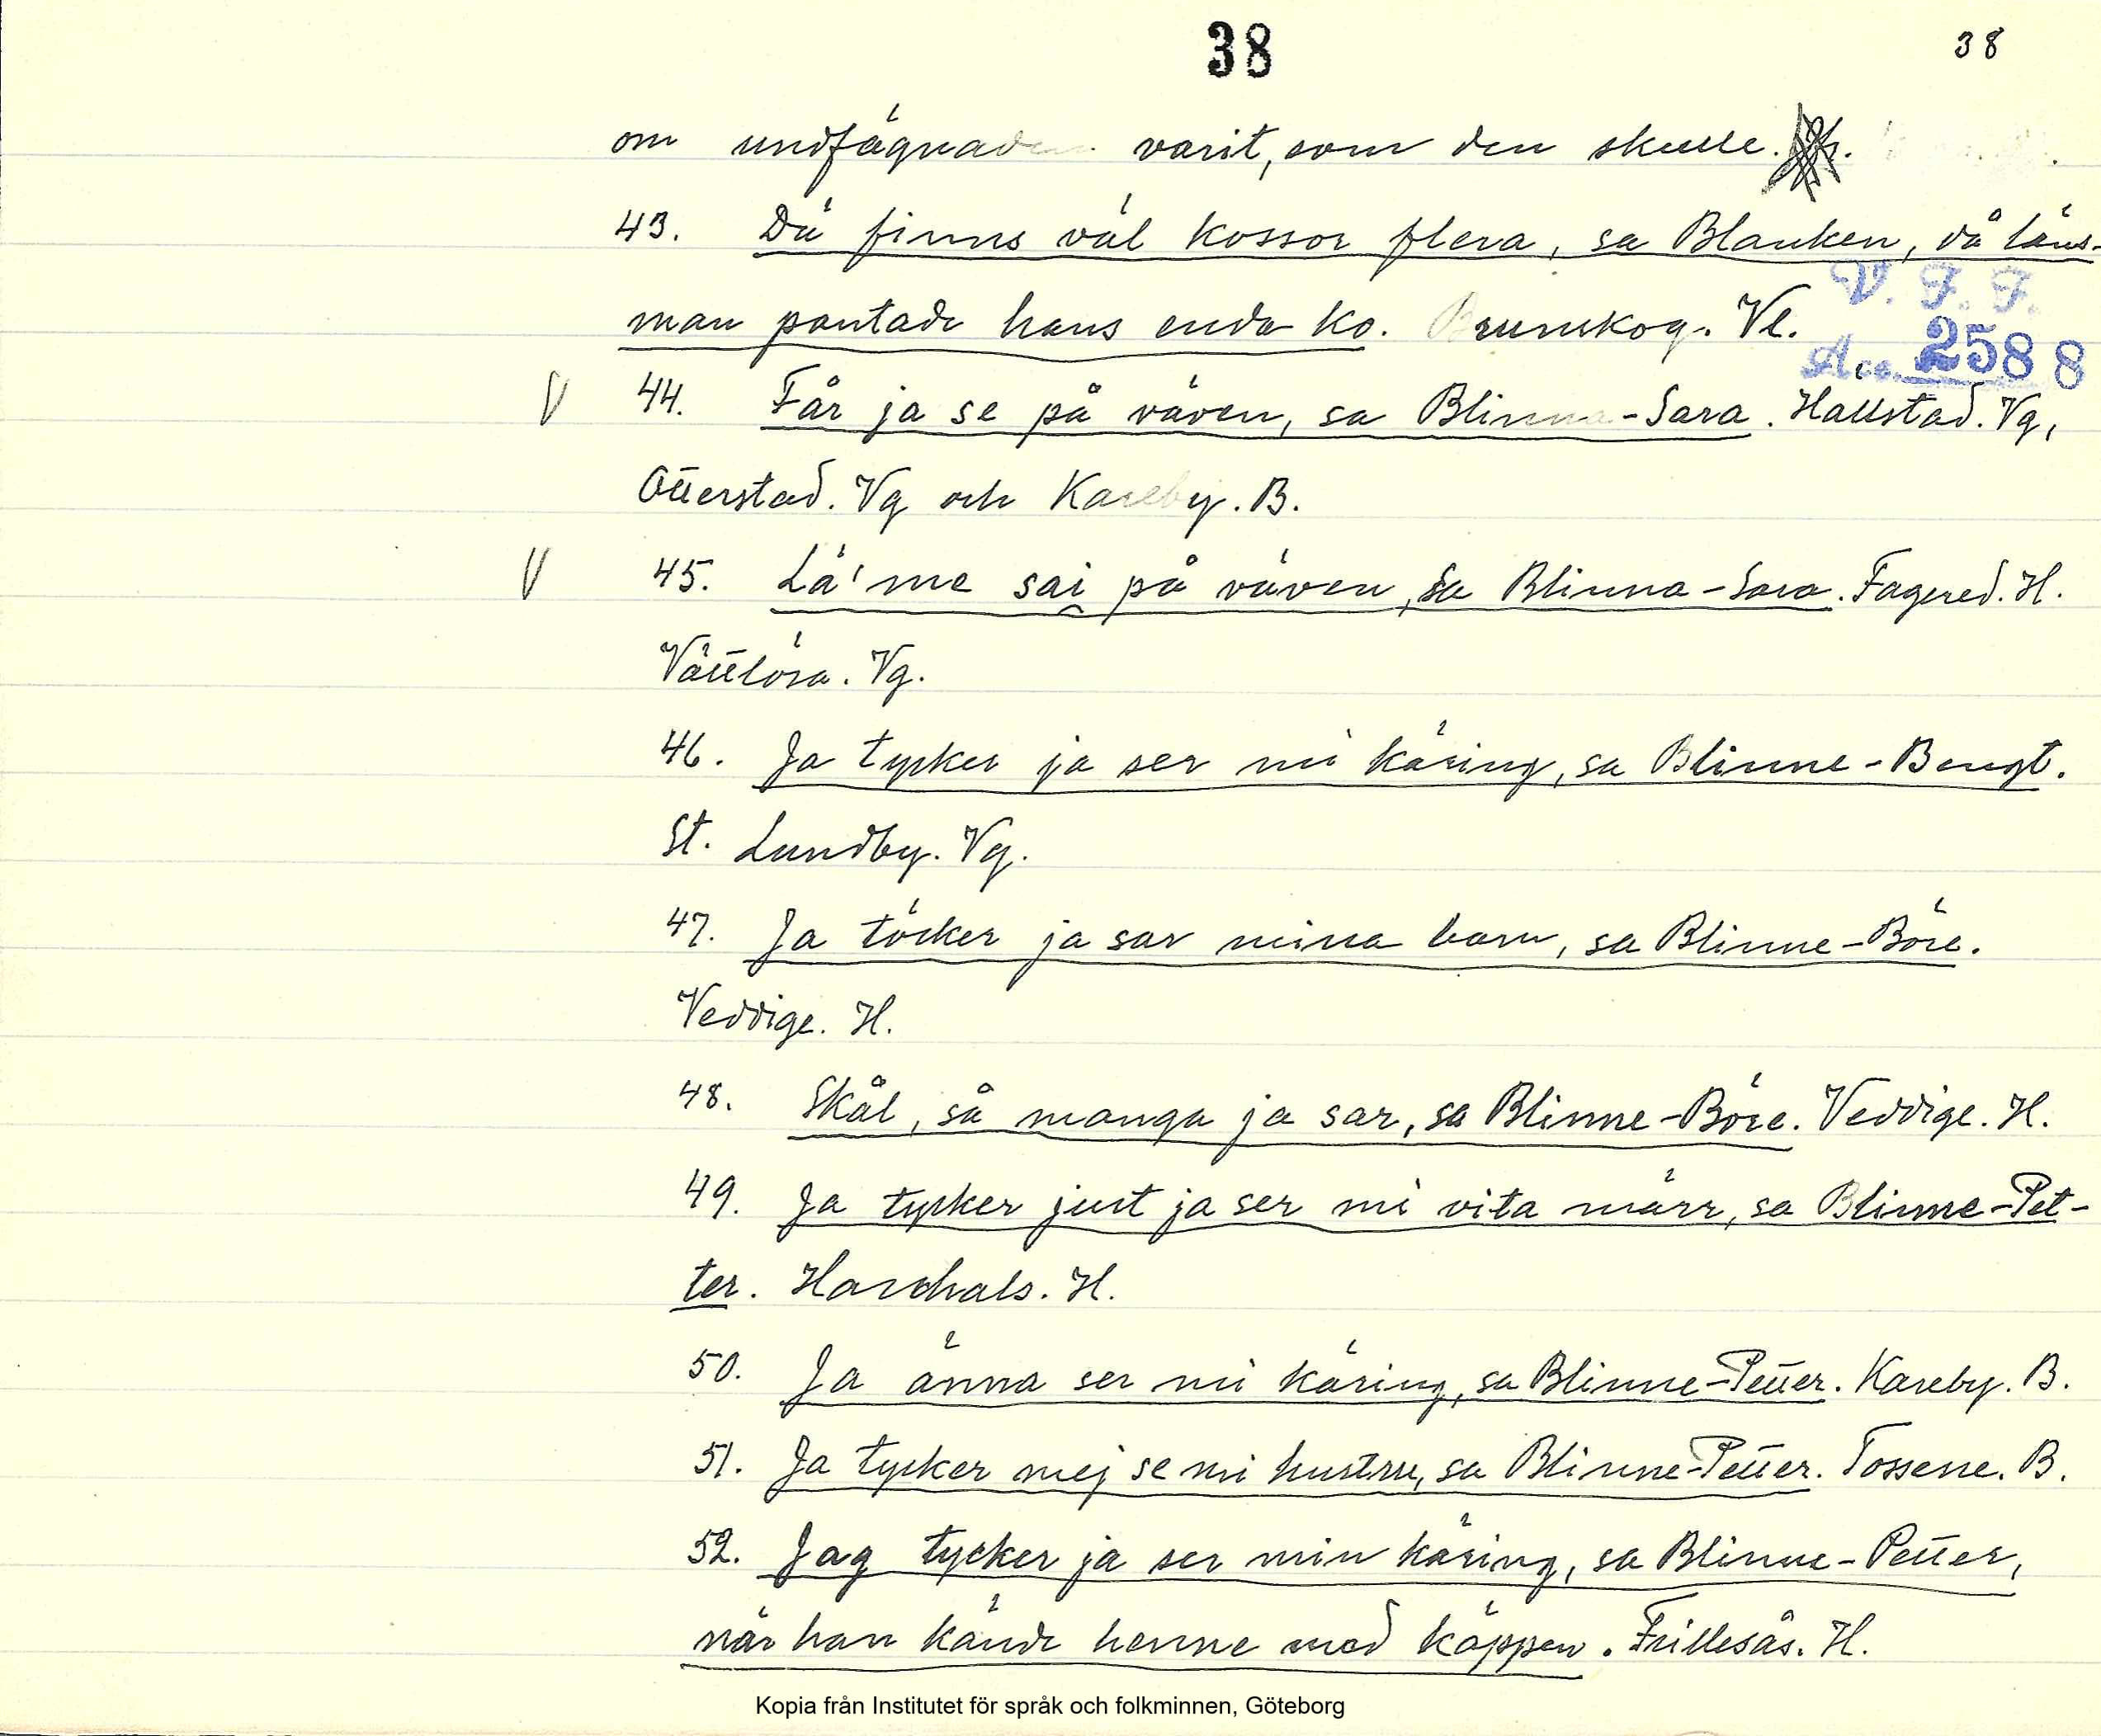 38 38
om undfägnaden varit, som den skulle.
43. Dä finns väl kossor flera, sa Blanken, då läns-
V. F. F.
man pantade hans enda ko. Brunskog. Vl.
Acc. 2588
V 44. Får ja se på väven, sa Blinna-Sara. Hallstad. Vg,
Otterstad. Vg och Kareby. B.
V 45. Lä' me sai på väven, sa Blinna-Sara. Fagered. H.
Vättlösa. Vg.
46. Ja tycker ja ser mi käring, sa Blinne-Bengt.
St. Lundby. Vg.
47. Ja töcker ja sar mina barn, sa Blinne-Böre.
Veddige. H.
48. Skål, så manga ja sar, sa Blinne-Böre. Veddige. H.
49. Ja tycker just ja ser mi vita märr, sa Blinne-Pet-
ter. Hanehals. H.
50. Ja änna ser mi käring, sa Blinne-Petter. Kareby. B.
51. Ja tycker mej se mi hustru, sa Blinne-Petter. Tossene. B.
52. Jag tycker ja ser min käring, sa Blinne-Petter,
när han kände henne med käppen. Frillesås. H.
Kopia från Institutet för språk och folkminnen, Göteborg